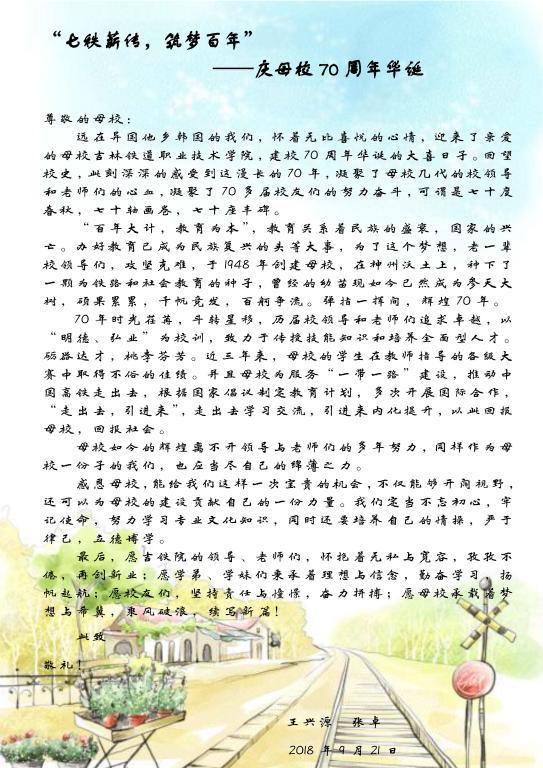 “七秩薪传，筑梦百年”
——庆母校 70 周年华诞
尊敬的母校：
远在异国他乡韩国的我们，怀着无比喜悦的心情，迎来了亲爱
的母校吉林铁道职业技术学院，建校 70 周年华诞的大喜日子。回望
校史，此刻深深的感受到这漫长的 70 年，凝聚了母校几代的校领导
和老师们的心血，凝聚了 70 多届校友们的努力奋斗，可谓是七十度
春秋，七十轴画卷，七十座丰碑。
“百年大计，教育为本”，教育关系着民族的盛衰，国家的兴
亡。办好教育已成为民族复兴的头等大事，为了这个梦想，老一辈
校领导们，攻坚克难，于 1948 年创建母校，在神州沃土上，种下了
一颗为铁路和社会教育的种子，曾经的幼苗现如今已然成为参天大
树，硕果累累，千帆竞发，百舸争流。弹指一挥间，辉煌 70 年。
70 年时光荏苒，斗转星移，历届校领导和老师们追求卓越，以
“明德、弘业”为校训，致力于传授技能知识和培养全面型人才。
砺路达才，桃李芬芳。近三年来，母校的学生在教师指导的各级大
赛中取得不俗的佳绩。并且母校为服务“一带一路”建设，推动中
国高铁走出去，根据国家倡议制定教育计划，多次开展国际合作，
“走出去，引进来”，走出去学习交流，引进来内化提升，以此回报
母校，回报社会。
母校如今的辉煌离不开领导与老师们的多年努力，同样作为母
校一份子的我们，也应当尽自己的绵薄之力。
感恩母校，能给我们这样一次宝贵的机会，不仅能够开阔视野，
还可以为母校的建设贡献自己的一份力量。我们定当不忘初心，牢
记使命，努力学习专业文化知识，同时还要培养自己的情操，严于
律己，立德博学。
最后，愿吉铁院的领导、老师们，怀抱着无私与宽容，孜孜不
倦，再创新业；愿学弟、学妹们秉承着理想与信念，勤奋学习，扬
帆起航；愿校友们，坚持责任与憧憬，奋力拼搏；愿母校承载着梦
想与希冀，乘风破浪，续写新篇！
此致
敬礼！
王兴源 张卓
2018 年 9 月 21 日